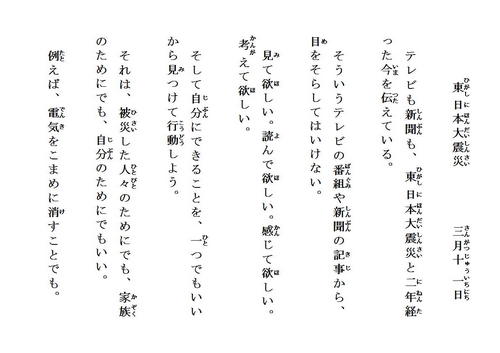 東日本大震災　三月十一日
テレビも新聞も、東日本大震災と二年経
った今を伝えている。
そういうテレビの番組や新聞の記事から、
目をそらしてはいけない。
見て欲しい。読んで欲しい。感じて欲しい。
考えて欲しい。
そして自分にできることを、一つでもいい
から見つけて行動しよう。
それは、被災した人々のためにでも、家族
のためにでも、自分のためにでもいい。
例えば、電気をこまめに消すことでも。